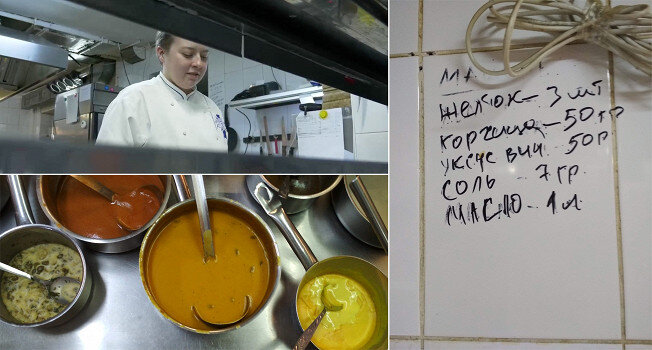 желток - 3 шт
горчица - 50 гр
уксус вин. 50 гр
соль - 7 гр
масло - 1 л